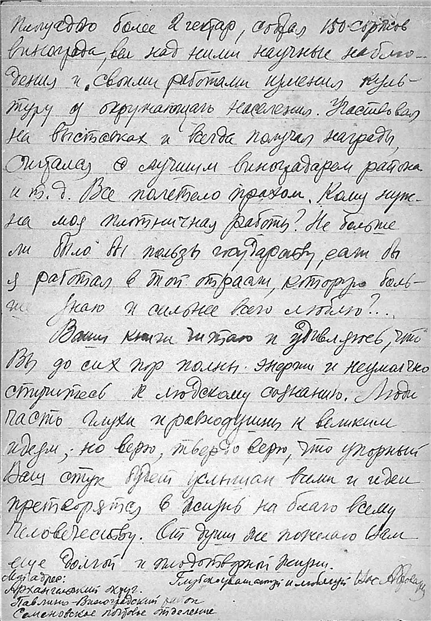 площадью более 2 гектар, собрал 150 сортов
винограда, вел над ними научные наблю-
дения и своими работами изменил куль-
туру у окружающаго населения. Участвовал
на выставках и всегда получал награды,
считался лучшим виноградарем района
и т.д. Все полетело прахом. Кому нуж-
на моя плотничная работа? Не больше
ли было бы пользы государству, если бы
я работал в той отрасли, которую боль-
ше знаю и сильнее всего люблю?...
Ваши книги читаю и удивляюсь, что
Вы до сих пор полны энергии и неумолчно
стучитесь к людскому сознанию. Люди
часть глухи и равнодушны к великим
идеям, но верю, твердо верю, что упорный
Ваш стук будет услышан всеми и идеи
претворятся в жизнь на благо всему
человечеству. От души же пожелаю Вам
еще долгой и плодотворной жизни.
Глубокоуважающий и любящий Вас
Мой адрес:
Архангельский округ.
район
Семеновское почтовое отделение